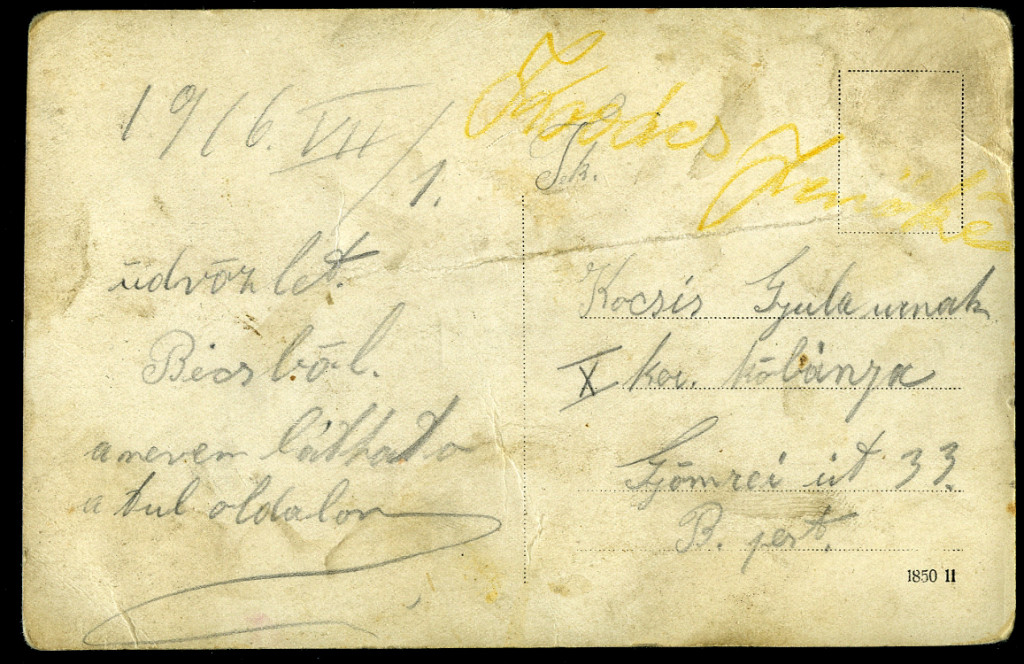 1916. VII/1.
üdvözlet.
Bécsből.
a nevem látható
a tul oldalon
Kovács
Tek.
Kocsis Gyula urnak
X ker. kőbánya
Gyömrői út 33.
B. pest.
1850 11